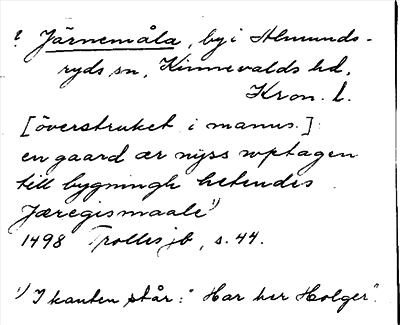 ? Järnemåla, by i Almunds-
ryds sn, Kinnevalds hd,
Kron. l.
[överstruket i manus.]
en gaard ær nyss uptagen
till bygningh hetendes
Jæregismaale¹⁾
1498 Trolles jb, s. 44.
¹⁾ I kanten står: "Har her Holger".